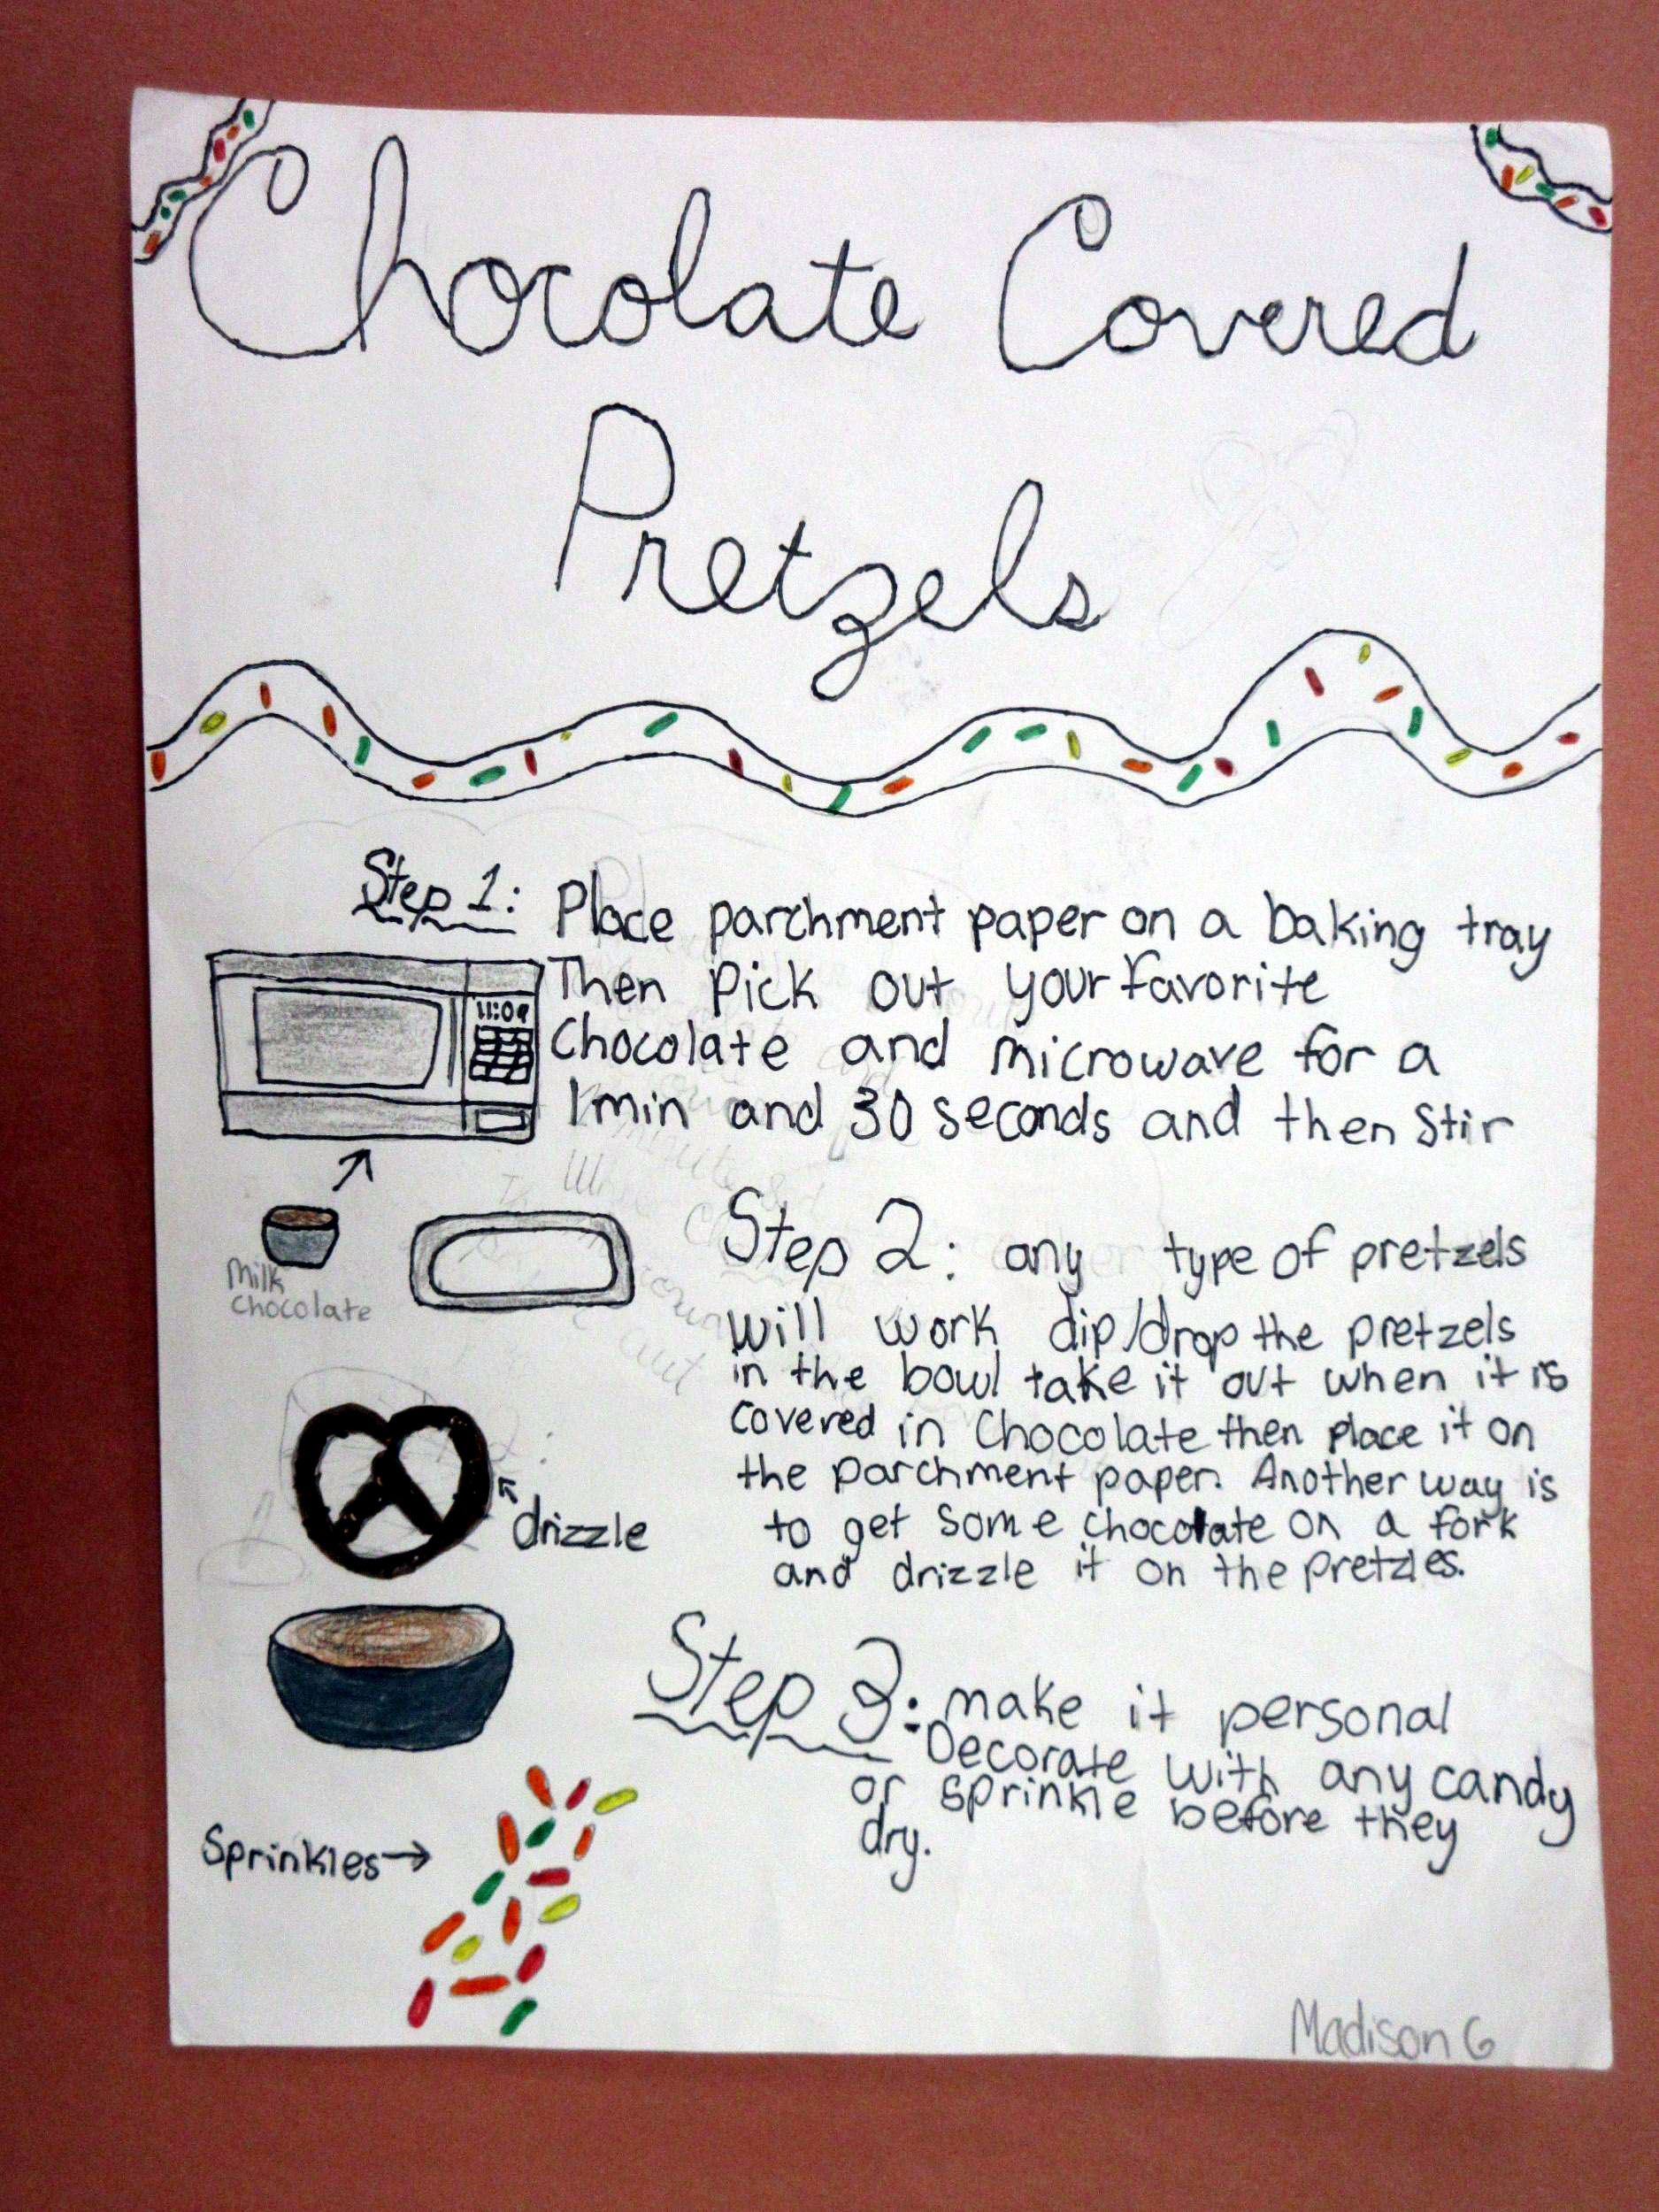 Chocolate Covered
Pretzels
Step 1: Place parchment paper on a baking tray
Then Pick out your favorite
Chocolate and microwave for a
1min and 30 seconds and then Stir
11:09
Milk
Chocolate
Step 2: any type of pretzels
will work dip/drop the pretzels
in the bowl take it out when it is
covered in Chocolate then place it on
the parchment paper. Another way is
to get some chocolate on a fork
and drizzle it on the pretzles.
drizzle
Step 3: make it personal
Decorate with any candy
or sprinkle before they
dry.
Sprinkles
Madison G